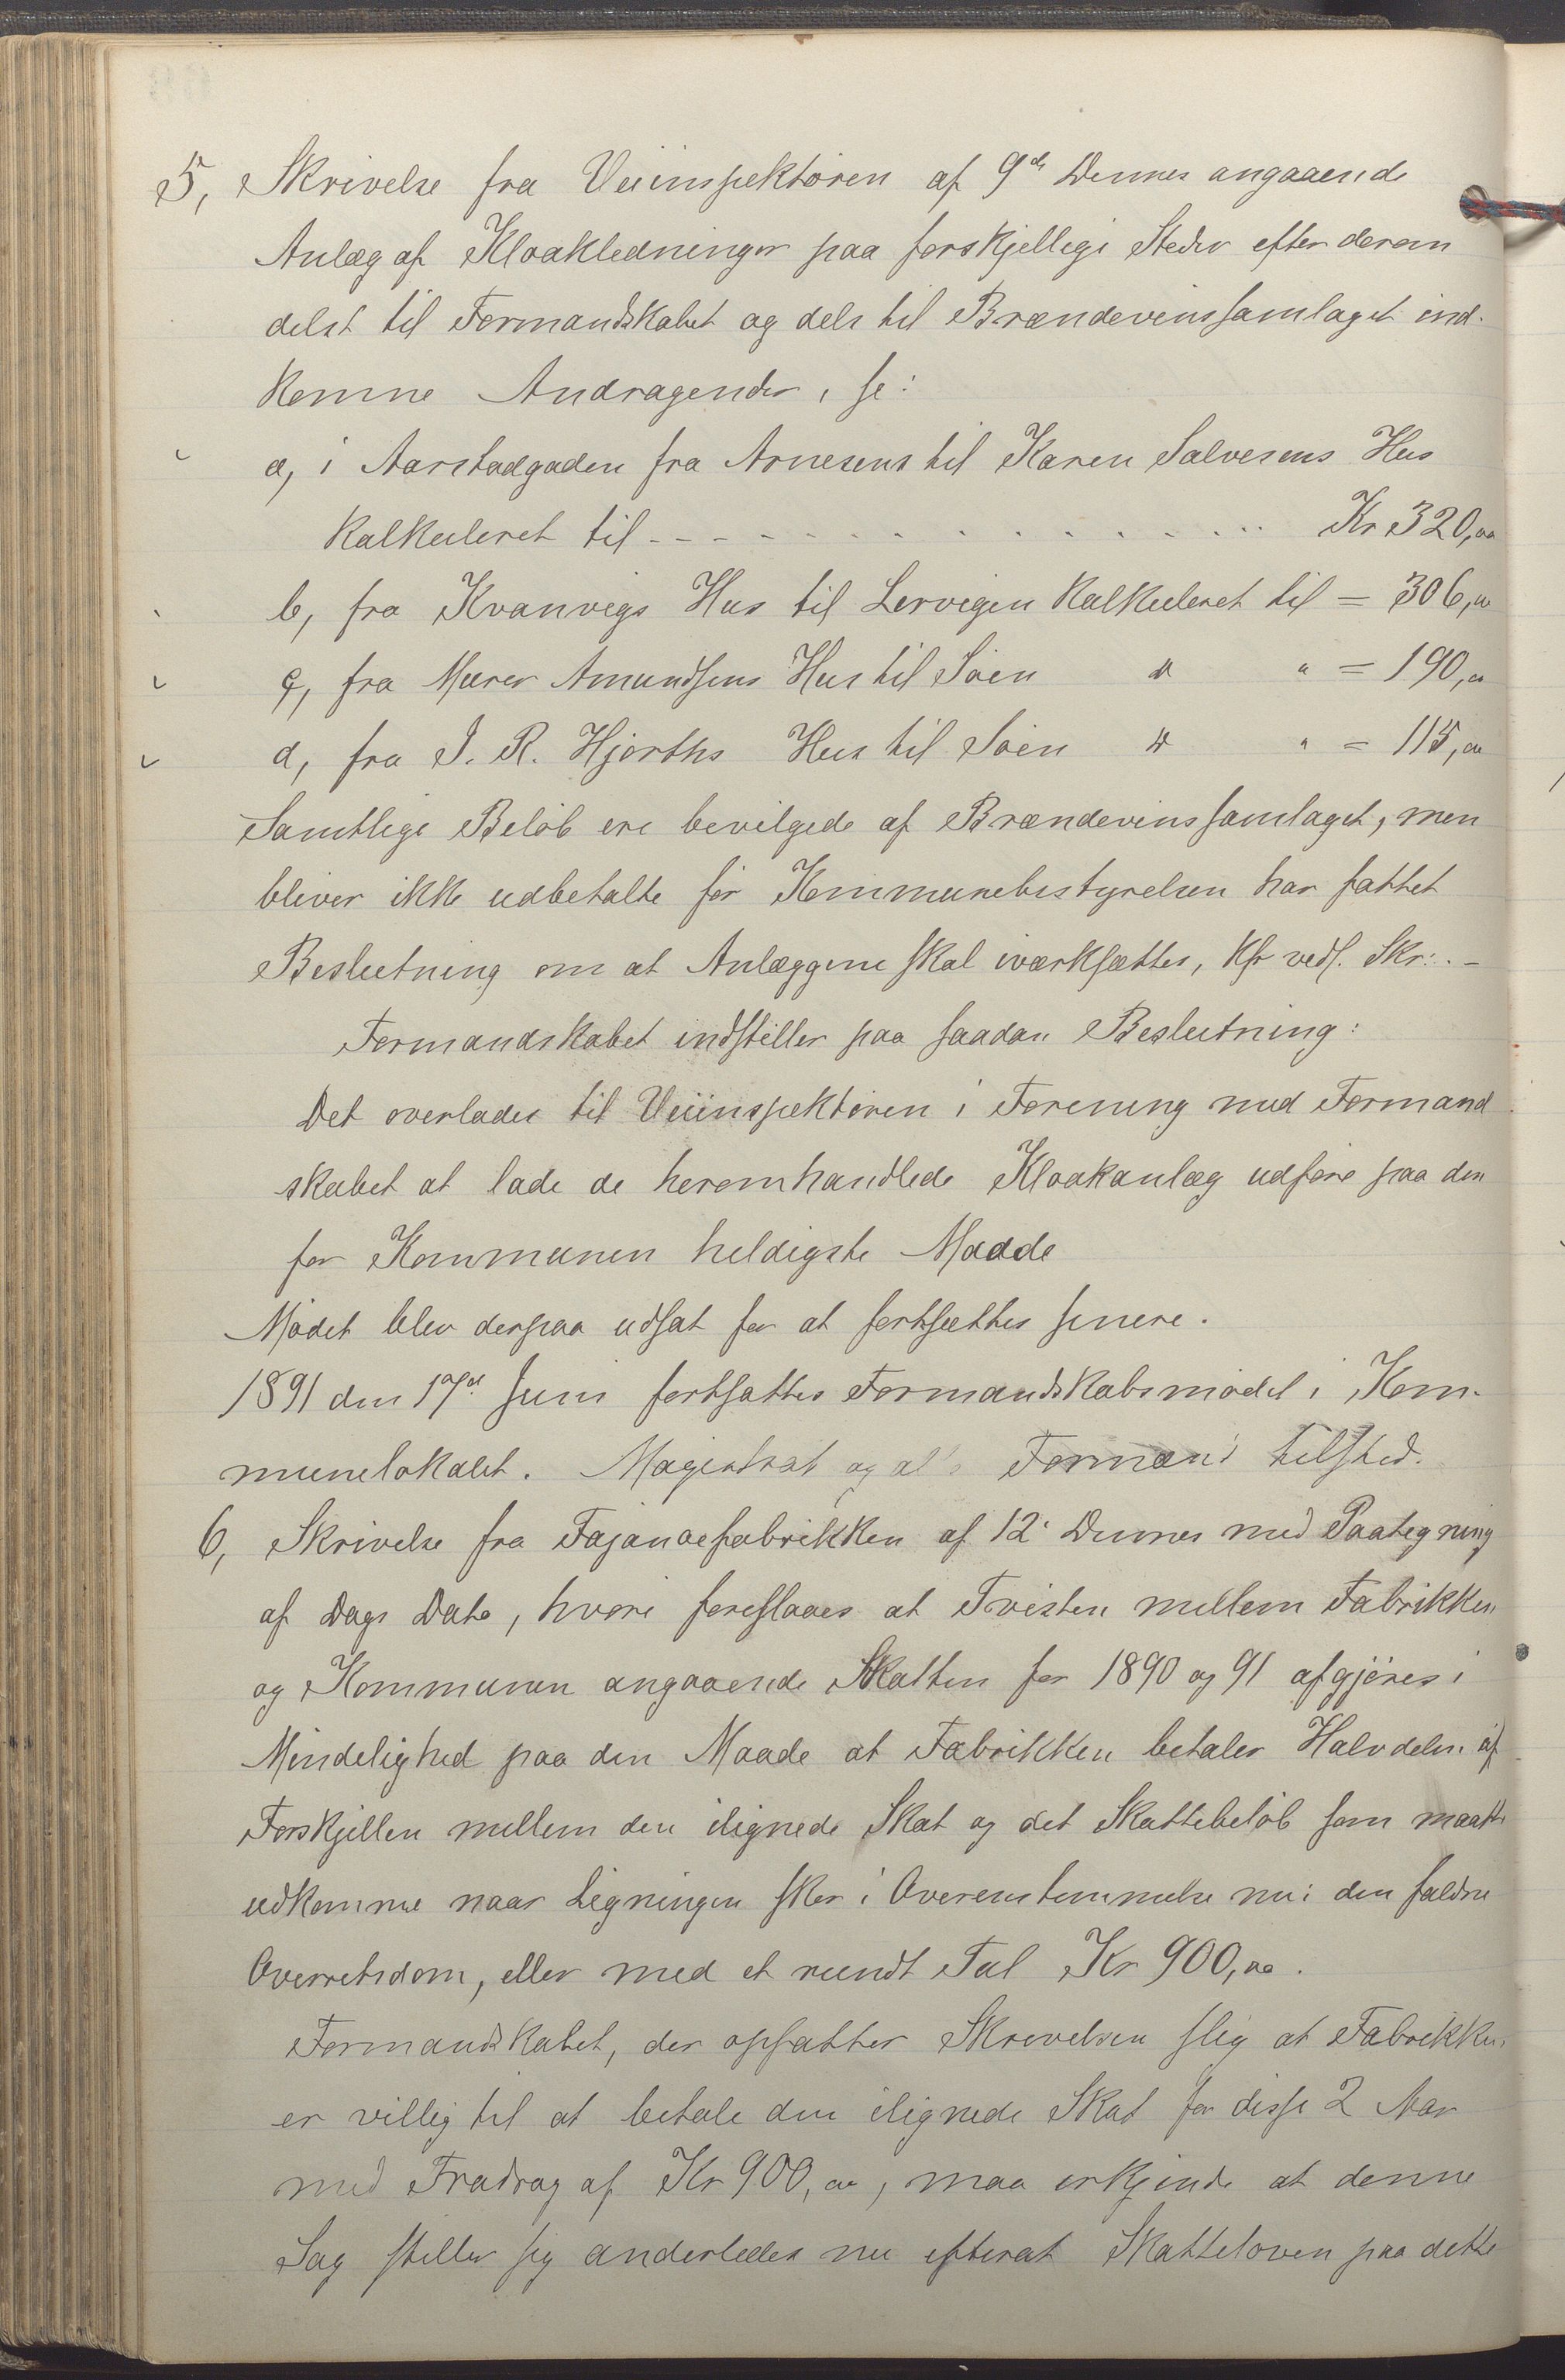 5, Skrivelse fra Veiinspektøren af 9de Dennes angaaende
Anlæg af Kloakledninger paa forskjellige Steder efter derom
delst til Formandskabet og dels til Brændevinssamlaget ind-
komne Andragender, se:
a, i Aarstadgaden fra Arnesens til Karen Salvesens Hus
kalkuleret til - - - - - - - - - - - - - - - - Kr 320,00
b, fra Kvanvigs Hus til Lervigen kalkuleret til = 306,00
c, fra Murer Amundsens Hus til Søen " " = 190,00
d, fra I. R. Hjorths Hus til Søen " " = 115,00
Samtlige Beløb ere bevilgede af Brændevinssamlaget, men
bliver ikke udbetalte før Kommunebestyrelsen har fattet
Beslutning om at Anlæggene skal iværksættes, kfr vedl. Skr:. -
Formandskabet indstiller paa saadan Beslutning:
Det overlades til Veiinspektøren i Forening med Formand
skabet at lade de heromhandlede Kloakanlæg udføre paa den
for Kommunen heldigste Maade
Mødet blev derpaa udsat for at fortsættes senere.
1891 den 17de Juni fortsattes Formandskabsmødet i Kom-
munelokalet. Magistrat og alle Formænd tilsted.
6, Skrivelse fra Fajancefabrikken af 12' Dennes med Paategning
af Dags Dato, hvori foreslaaes at Tvisten mellem Fabrikken
og Kommunen angaaende Skatten for 1890 og 91 afgjøres i
Mindelighed paa den Maade at Fabrikken betaler Halvdelen af
Forskjellen mellem den ilignede Skat og det Skattebeløb som maatte
udkomme naar Ligningen sker i Overenstemmelse med den faldne
Overretsdom, eller med et rundt Tal Kr 900,00.
Formandskabet, der opfatter Skrivelsen slig at Fabrikken
er villig til at betale den ilignede Skat for disse 2 Aar
med Fradrag af Kr 900,00, maa erkjende at denne
Sag stiller sig anderledes nu efterat Skatteloven paa dette